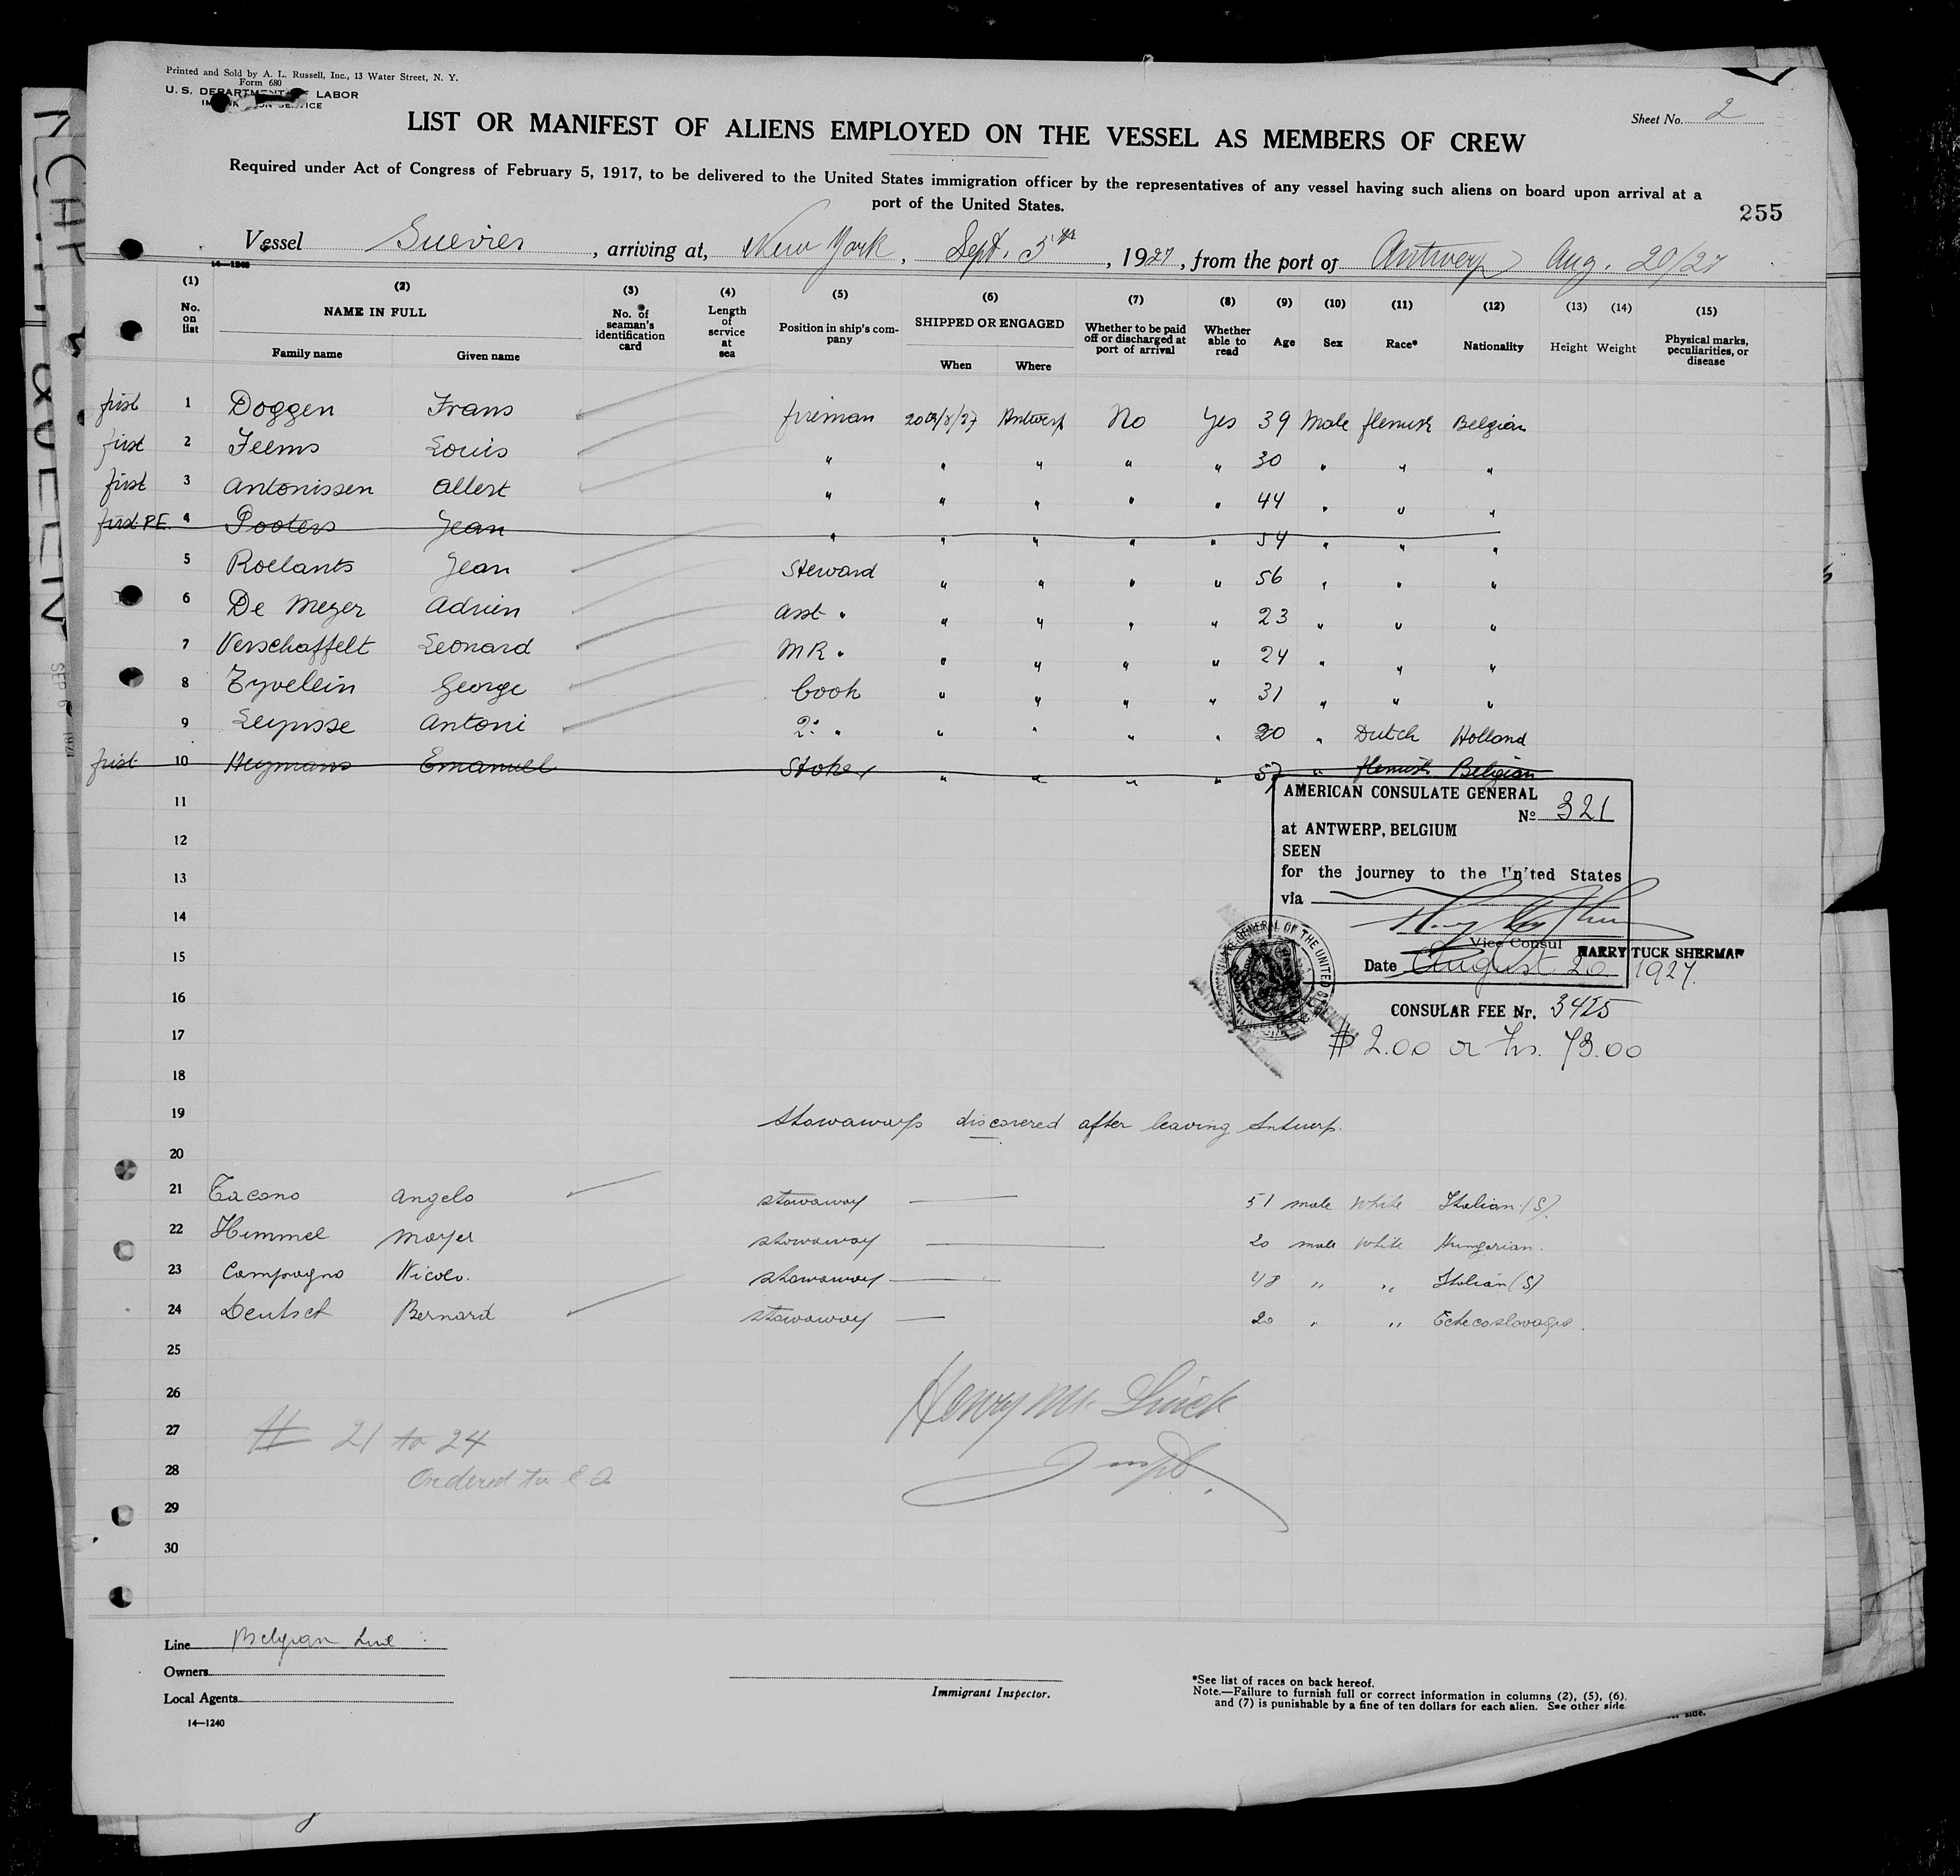 Printed and Sold by A. L. Russell, Inc., 13 Water Street, N. Y.
Form 680
U. S. DEPARTMENT OF LABOR
IMMIGRATION SERVICE
Sheet No. 2
LIST OR MANIFEST OF ALIENS EMPLOYED ON THE VESSEL AS MEMBERS OF CREW
Required under Act of Congress of February 5, 1917, to be delivered to the United States immigration officer by the representatives of any vessel having such aliens on board upon arrival at a
port of the United States.
255
Vessel Suevier, arriving at, New York, Sept. 5th, 1927, from the port of Antwerp Aug. 20/27
14—1240
(1) (2) (3) (4) (5) (6) (7) (8) (9) (10) (11) (12) (13) (14) (15)
No. on list NAME IN FULL Family name Given name No. of seaman's identification card Length of service at sea Position in ship's company SHIPPED OR ENGAGED When Where Whether to be paid off or discharged at port of arrival Whether able to read Age Sex Race* Nationality Height Weight Physical marks, peculiarities, or disease
first 1 Doggen Frans fireman 20/8/27 Antwerp No Yes 39 Male flemish Belgian
first 2 Feems Louis " " " " " 30 " " "
first 3 Antonissen Albert " " " " " 44 " " "
first P.E. 4 Pooters Jean " " " " " 54 " " "
5 Roelants Jean Steward " " " " 56 " " "
6 De Meyer Adrien Asst " " " " " 23 " " "
7 Verschaffelt Leonard MR " " " " " 24 " " "
8 Zyvelein George Cook " " " " 31 " " "
9 Leynsse Antoni 2: " " " " " 20 " Dutch Holland
first 10 Heymans Emanuel Stoker " " " " 57 " flemish Belgian
11
12
13
14
15
16
17
18
AMERICAN CONSULATE GENERAL
No 321
at ANTWERP, BELGIUM
SEEN
for the journey to the United States
via
Vice Consul HARRY TUCK SHERMAN
Date August 20 1927.
CONSULAR FEE Nr. 3425
$ 2.00 or frs. 73.00
19 Stowaways discovered after leaving Antwerp.
20
21 Tacono Angelo stowaway 51 male White Italian (S).
22 Himmel Mayer stowaway 20 male White Hungarian.
23 Campagno Nicolo. stowaway 48 " " Italian (S)
24 Deutsch Bernard stowaway 20 " "
25
26
27 # 21 to 24
28 Ordered to
29
30
Line Belgian Line
Owners
Local Agents
14—1240
Immigrant Inspector.
*See list of races on back hereof.
Note.—Failure to furnish full or correct information in columns (2), (5), (6),
and (7) is punishable by a fine of ten dollars for each alien. See other side.